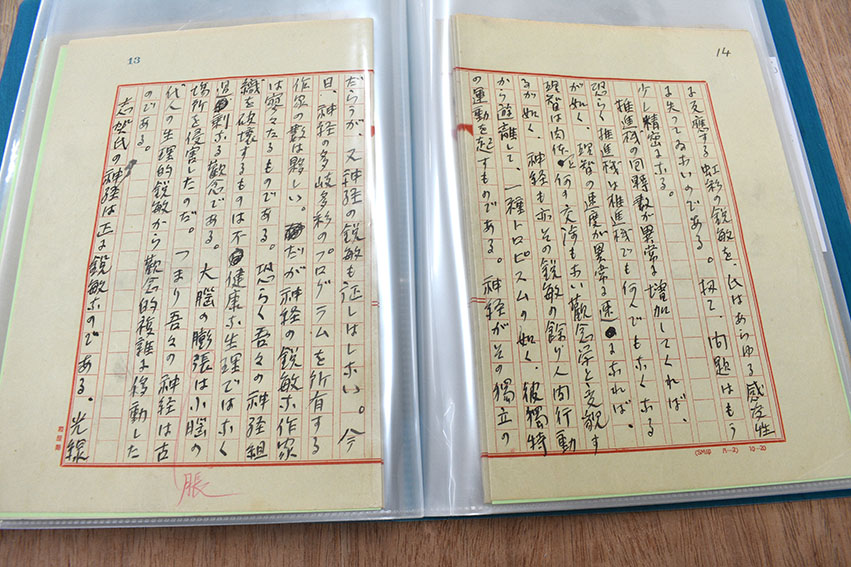 13
だらうが、又神経の鋭敏も証しはしない。今
日、神経の多岐多彩のプログラムを所有する
作家の數は夥しい。だが神経の鋭敏な作家
は寥々たるものである。恐らく吾々の神経組
織を破壊するものは不健康な生理ではなく
過剰なる觀念である。大腦の膨張は小腦の
場所を侵害したのだ。つまり吾々の神経は古
代人の生理的鋭敏から觀念的複雑に移動した
のである。
志賀氏の神経は正に鋭敏なのである。光線
脹
14
に反應する虹彩の鋭敏を、氏はあらゆる感受性
に失つてゐないのである。扨て、問題はもう
少し精密になる。
推進機の回轉數が異常に増加してくれば、
恐らく推進機は推進機でも何んでもなくなる
が如く、理智の速度が異常に速になれば、
理智は肉体と何の交渉もない觀念学と変貌す
るが如く、神経も亦その鋭敏の餘り人間行動
から遊離して、一種トロピスムの如く、彼獨特
の運動を起すものである。神経がその獨立の
10-20